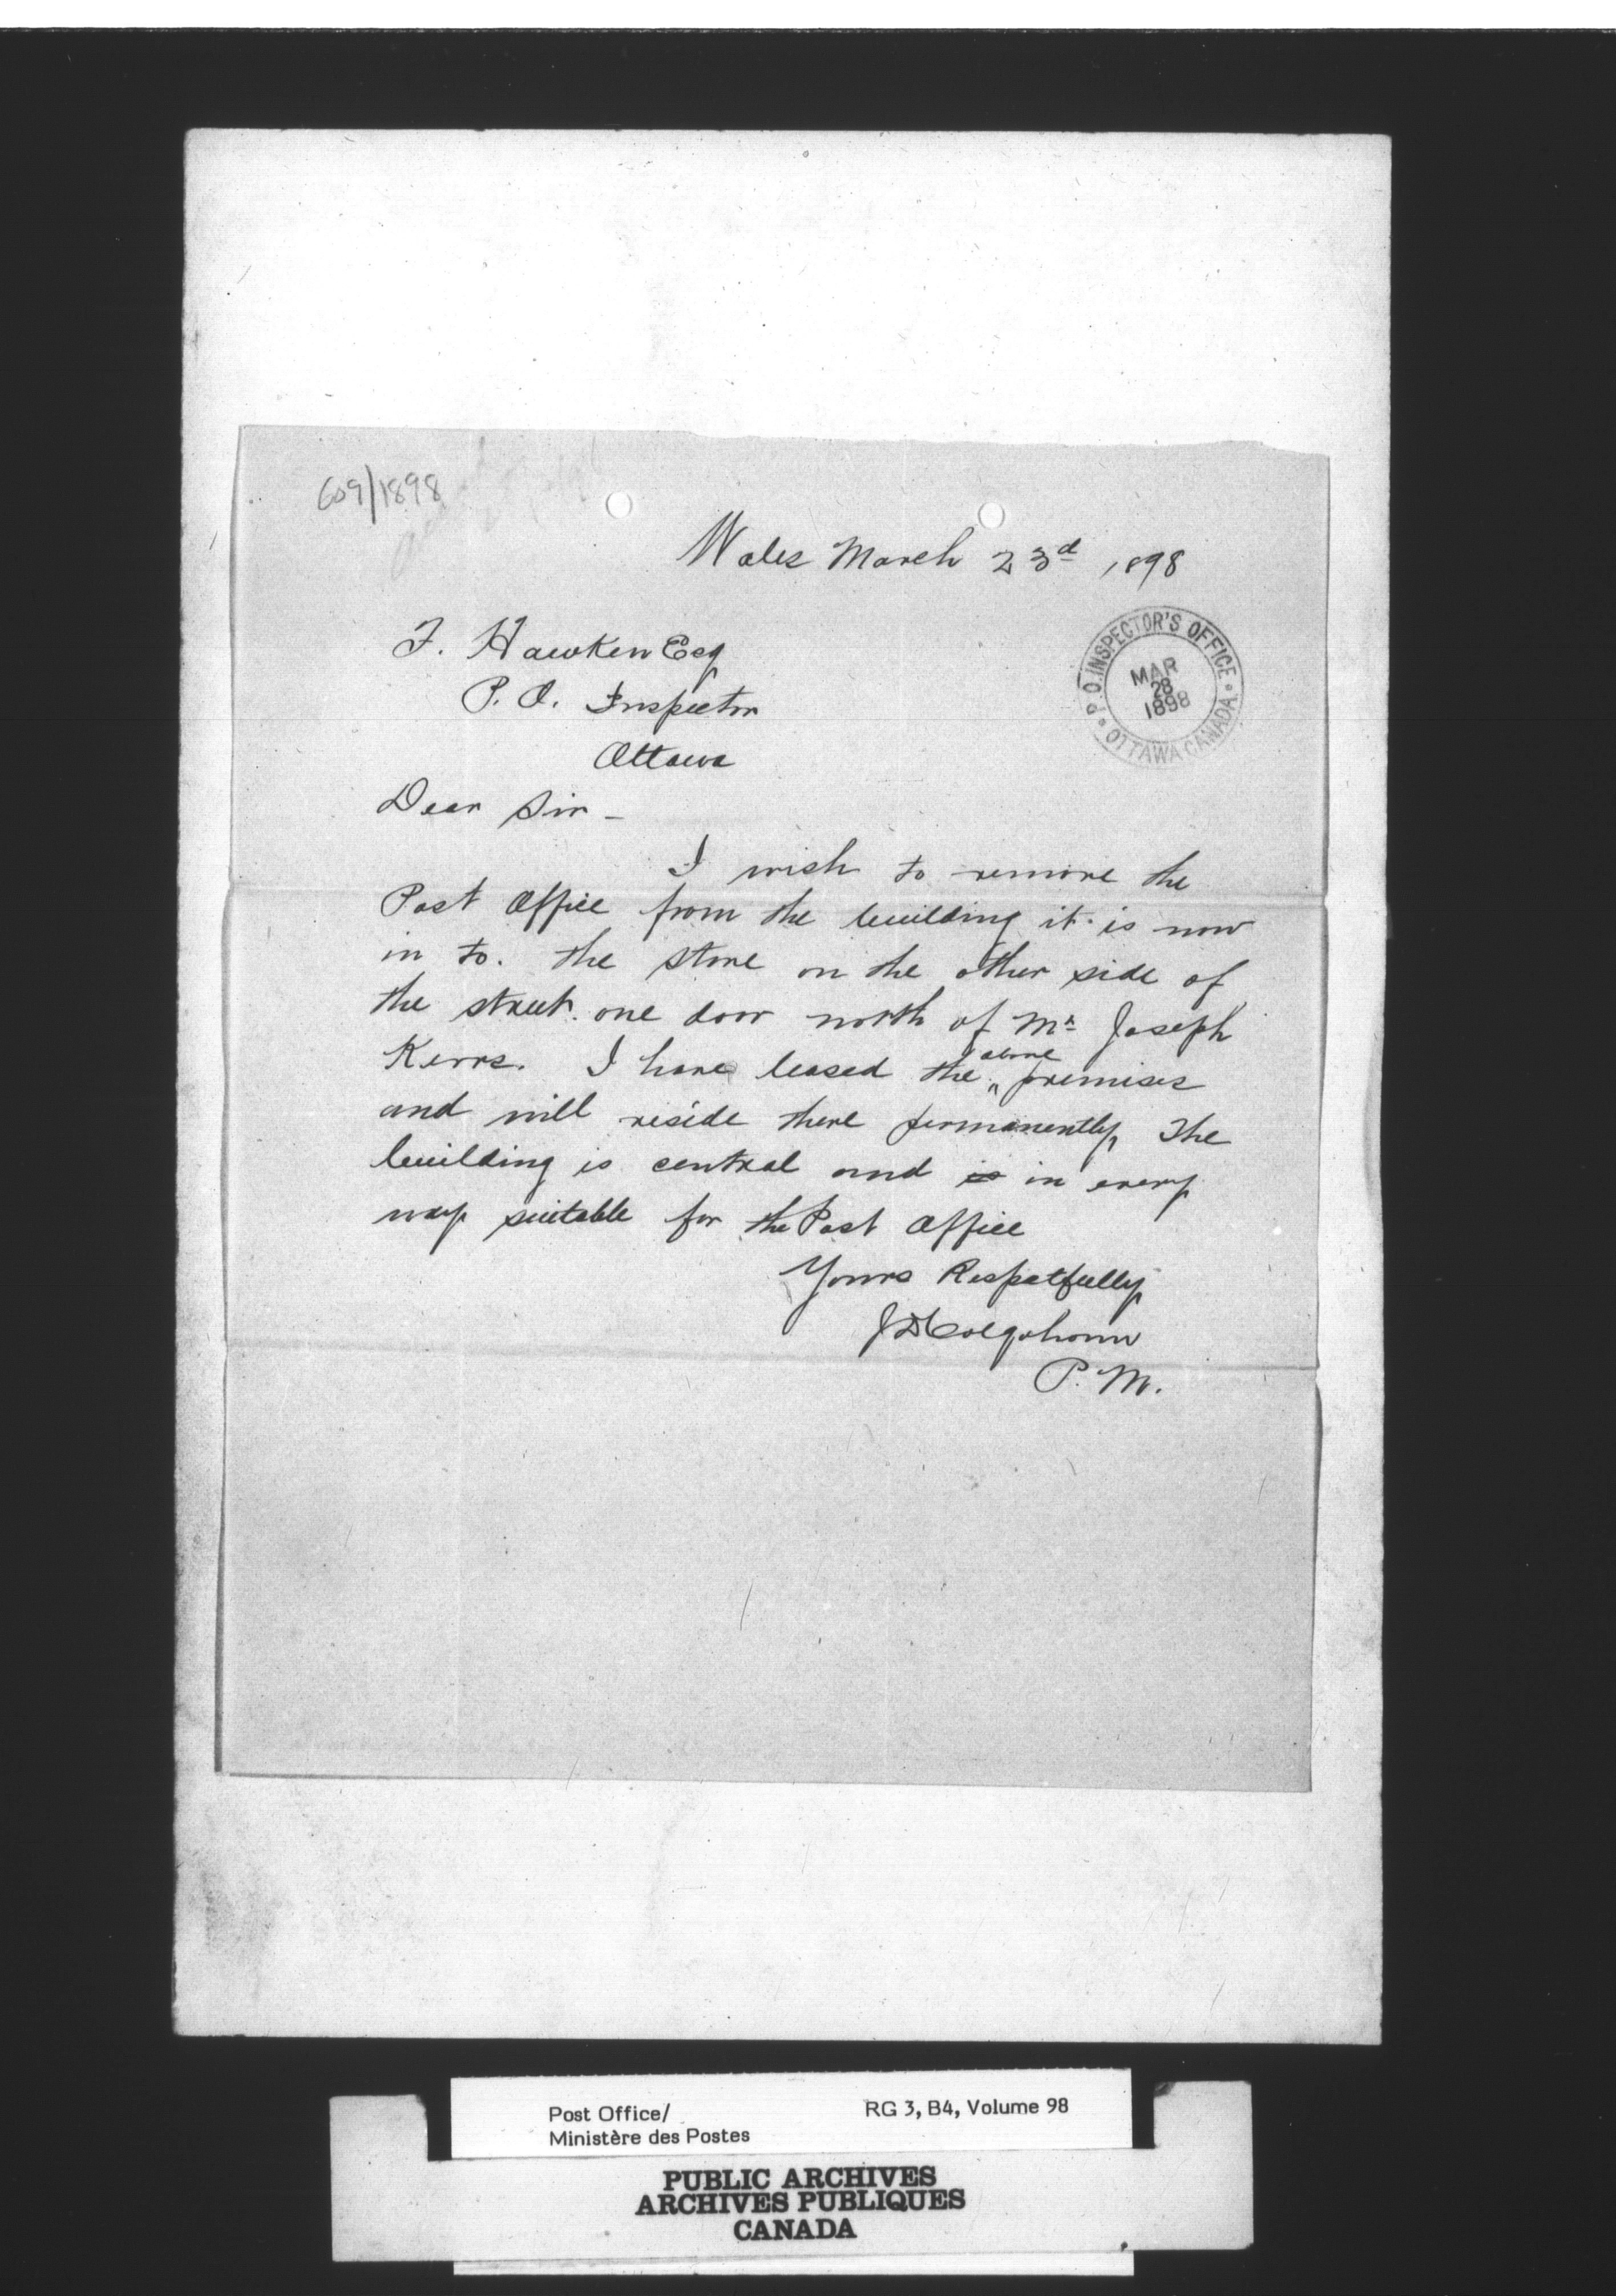 609/1898
Wales March 23d 1898
P.O. INSPECTOR'S OFFICE
MAR
28
1898
OTTAWA CANADA
F. Hawken Esq
P. O. Inspector
Ottawa
Dear Sir -
I wish to remove the
Post Office from the building it is now
in to. the store on the other side of
the street. one door north of Mr Joseph
Kerrs. I have leased the above premises
and will reside there permanently, The
building is central and is in every
way suitable for the Post Office
Yours Respetfully
J D Colquhoun
P. M.
Post Office/
Ministère des Postes
RG 3, B4, Volume 98
PUBLIC ARCHIVES
ARCHIVES PUBLIQUES
CANADA